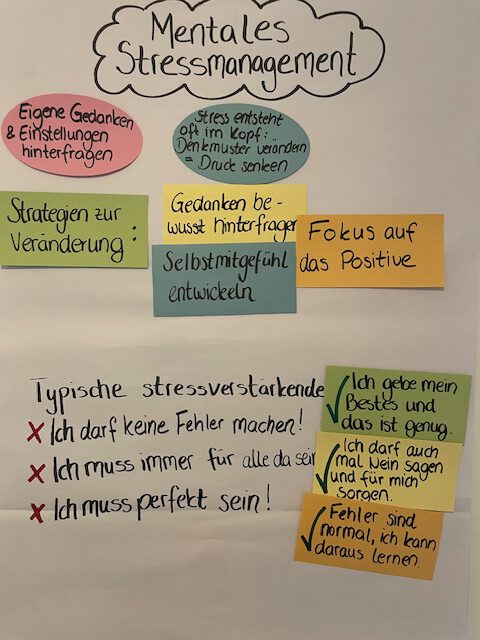 Mentales
Stressmanagement
Eigene Gedanken
& Einstellungen
hinterfragen
Stress entsteht
oft im Kopf:
Denkmuster verändern
= Druck senken
Strategien zur
Veränderung:
Gedanken be-
wusst hinterfragen
Selbstmitgefühl
entwickeln
Fokus auf
das Positive
Typische stressverstärkende
X Ich darf keine Fehler machen!
X Ich muss immer für alle da sein
X Ich muss perfekt sein!
✓ Ich gebe mein
Bestes und
das ist genug.
✓ Ich darf auch
mal Nein sagen
und für mich
sorgen.
✓ Fehler sind
normal, ich kann
daraus lernen.